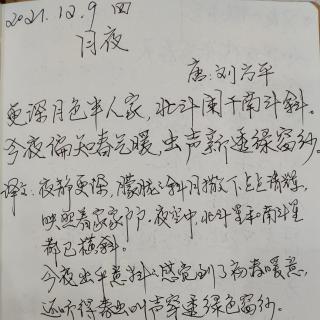 2021.12.9 四
月夜
唐:刘方平
更深月色半人家,北斗阑干南斗斜。
今夜偏知春气暖,虫声新透绿窗纱。
译文:夜静更深,朦胧之斜月撒下点点清辉,
映照着家家户户,夜空中,北斗星和南斗星
都已横斜。
今夜出乎意料之感觉到了初春暖意,
还听得春虫叫声穿透绿色窗纱。